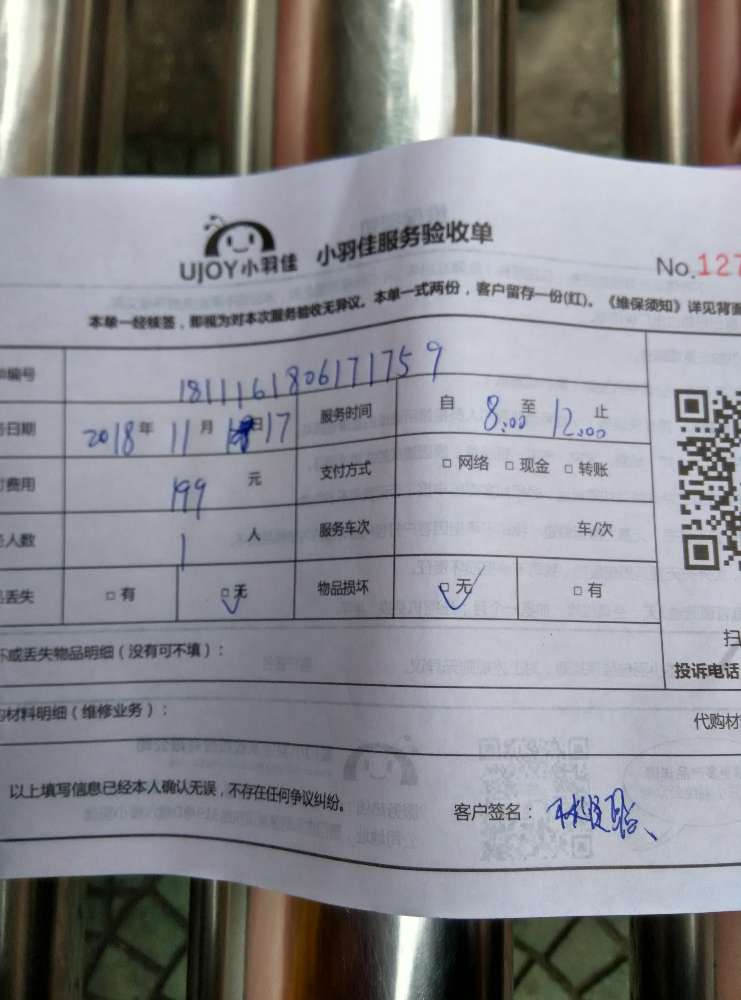 UJOY小羽佳 小羽佳服务验收单
No.127
本单一经核签，即视为对本次服务验收无异议。本单一式两份，客户留存一份(红)。《维保须知》详见背面
编号 1811161806171759
日期 2018年 11月 日17 服务时间 自 8:00 至 12:00 止
费用 199 元 支付方式 □ 网络 □ 现金 □ 转账
人数 1 人 服务车次 车/次
丢失 □ 有 □ 无 物品损坏 □ 无 □ 有
扫
坏或丢失物品明细（没有可不填）： 投诉电话
材料明细（维修业务）： 代购材
以上填写信息已经本人确认无误，不存在任何争议纠纷。 客户签名：